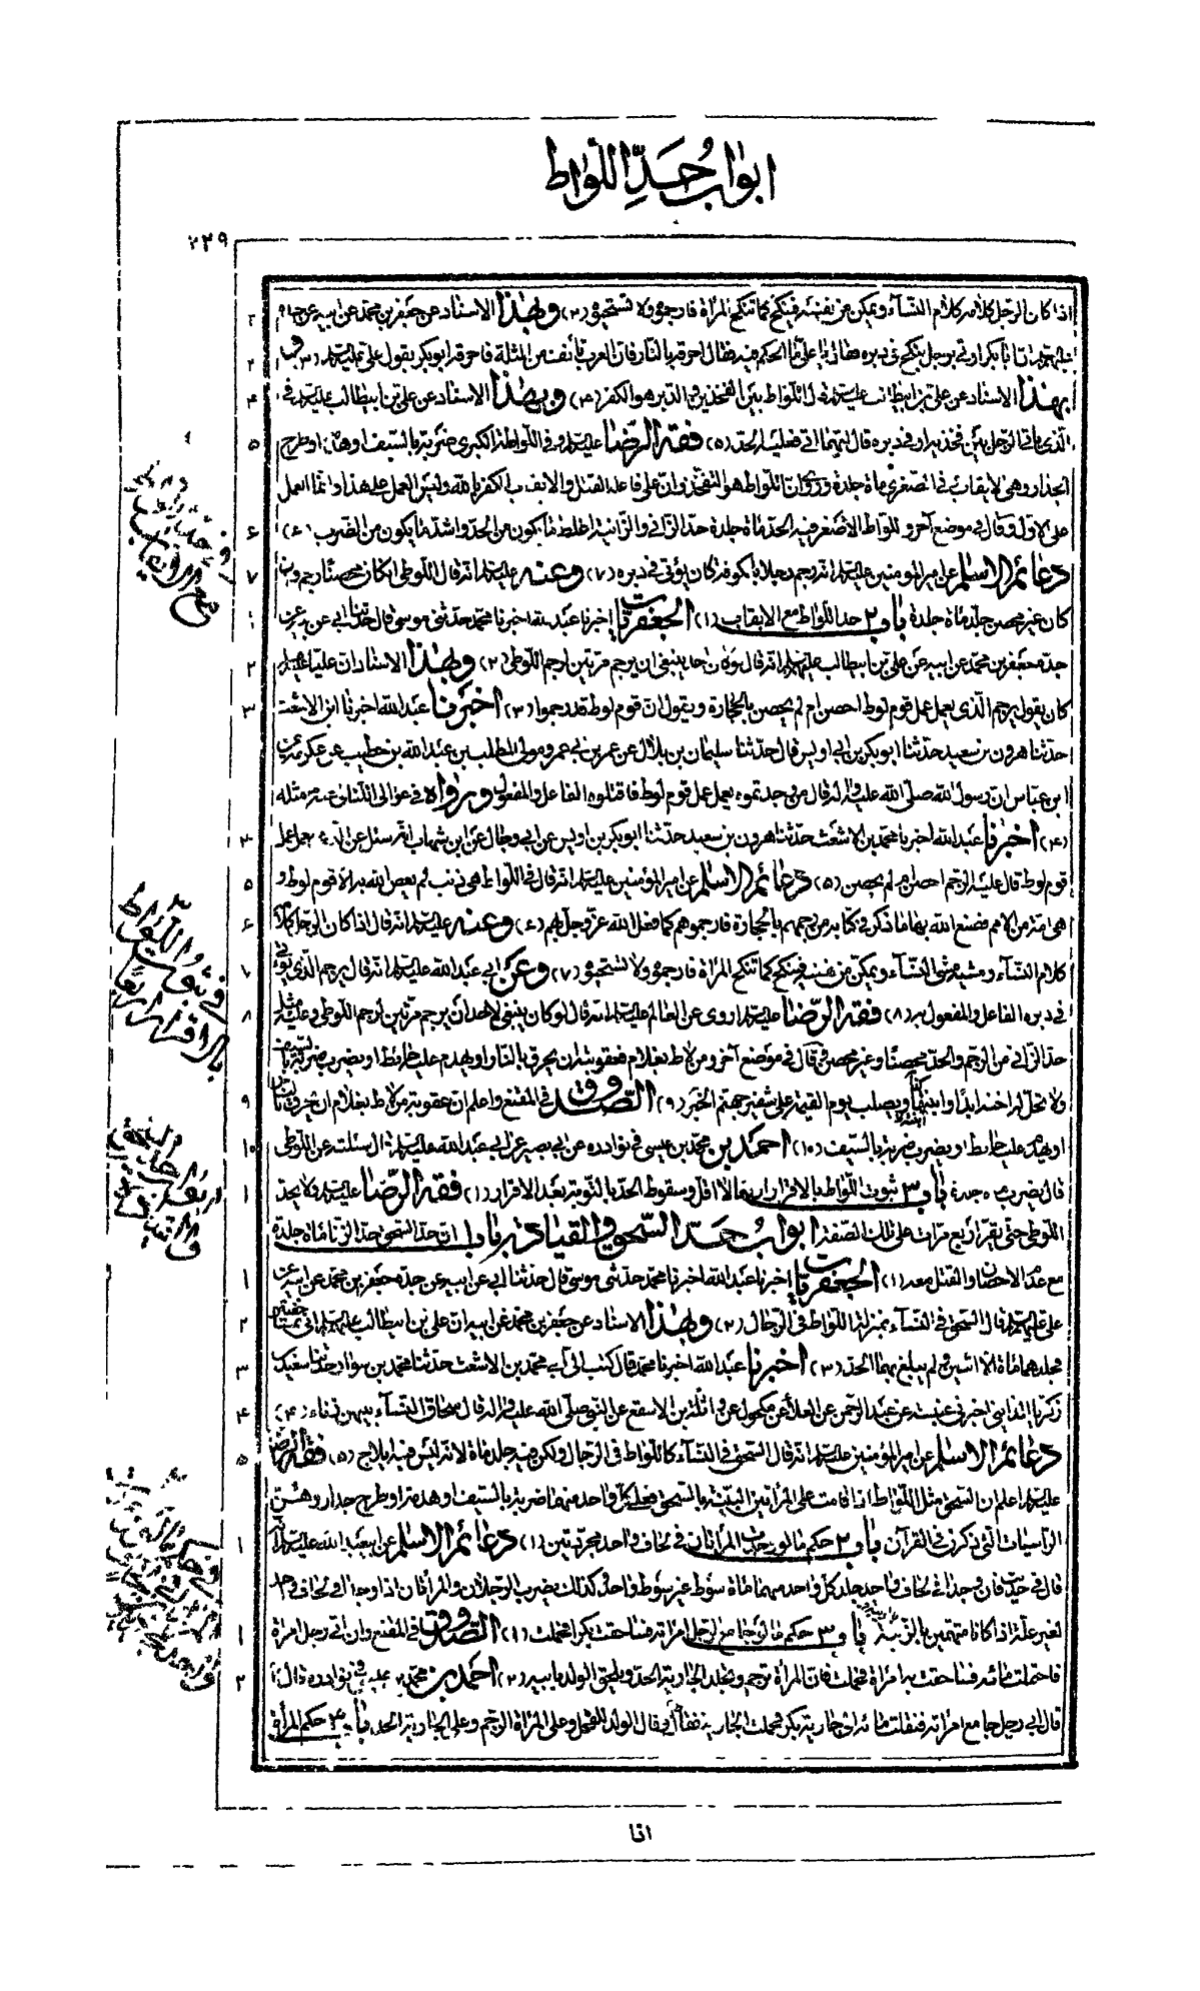 ابواب حد اللواط
٢٢٩
اذا كان الرجل كلامه كلام النساء ويمكن من نفسه فينكح كما تنكح المرأة فارجموه ولا تستحيوه (٢) وبهذا الاسناد عن جعفر بن محمد عن ابيه عن جده
ان ابا بكر اوتي برجل ينكح في دبره فقال يا علي ما الحكم فيه فقال احرقه بالنار فان العرب تأنف من المثلة فاحرقه ابو بكر بقول علي عليه السلم (٣) و
بهذا الاسناد عن علي بن ابيطالب عليه السلم قال اللواط بين الفخذين والدبر هو الكفر (٤) وبهذا الاسناد عن علي بن ابيطالب عليه السلم في
الذي يأتي الرجل بين فخذيه او في دبره قال ايهما اتى فعليه الحد (٥) فقه الرضا عليه السلم وفي اللواطة الكبرى ضربة بالسيف او هدمة او طرح
الجدار وهي الايقاب وفي الصغرى مأة جلدة وروي ان اللواط هو التفخذ وان على فاعله القتل والايقاب الكفر بالله وليس العمل على هذا وانما العمل
على الاولة وقال في موضع آخر وللواط الاصغر فيه الحد مأة جلدة حد الزاني والزانية اغلظ ما يكون من الحد واشد ما يكون من الضرب (٦)
دعائم الاسلم عن امير المؤمنين عليه السلم انه رجم رجلا بالكوفة كان يؤتى في دبره (٧) وعنه عليه السلم انه قال اللوطي ان كان محصنا رجم وان
كان غير محصن جلد مأة جلدة باب ٢ حد اللواط مع الايقاب (١) الجعفريات اخبرنا عبد الله اخبرنا محمد حدثني موسى قال حدثنا ابي عن ابيه عن
جده جعفر بن محمد عن ابيه عن علي بن ابيطالب عليه السلم انه قال لو كان احد ينبغي ان يرجم مرتين لرجم اللوطي (٢) وبهذا الاسناد ان عليا عليه السلم
كان يقول يرجم الذي يعمل عمل قوم لوط احصن ام لم يحصن بالحجارة ويقول ان قوم لوط قد رجموا (٣) اخبرنا عبد الله اخبرنا ابن الاشعث
حدثنا هرون بن سعيد حدثنا ابو بكر بن ابي اويس قال حدثنا سليمان بن بلال عن عمر بن ابي عمرو مولى المطلب بن عبد الله بن حطيب عن عكرمة عن
ابن عباس ان رسول الله صلى الله عليه وآله قال من وجدتموه يعمل عمل قوم لوط فاقتلوه الفاعل والمفعول ورواه في عوالي اللئالي عنه مثله
(٤) اخبرنا عبد الله اخبرنا محمد بن الاشعث حدثنا هرون بن سعيد حدثنا ابو بكر بن اويس عن ابي وجال عن ابن شهاب انه سئل عن الذي يعمل عمل
قوم لوط قال عليه الرجم احصن ام لم يحصن (٥) دعائم الاسلم عن امير المؤمنين عليه السلم انه قال في اللواط هي ذنب لم يعص الله به الا قوم لوط و
هي امة من الامم فصنع الله بها ما ذكر في كتابه من رجمهم بالحجارة فارجموهم كما فعل الله عز وجل بهم (٦) وعنه عليه السلم انه قال اذا كان الرجل كلامه
كلام النساء ومشيه مشي النساء ويمكن من نفسه فينكح كما تنكح المرأة فارجموه ولا تستحيوه (٧) وعن ابي عبد الله عليه السلم انه قال يرجم الذي يؤتى
في دبره الفاعل والمفعول به (٨) فقه الرضا عليه السلم اروي عن العالم عليه السلم انه قال لو كان ينبغي لاحد ان يرجم مرتين لرجم اللوطي وعليه مثل
حد الزاني من الرجم والحد محصنا وغير محصن وقال في موضع آخر ومن لاط بغلام فعقوبته ان يحرق بالنار او يهدم عليه حائط او يضرب ضربة بالسيف
ولا تحل له اخته ابدا وابنتها ويصلب يوم القيمة على شفير جهنم الخبر (٩) الصدوق في المقنع واعلم ان عقوبة من لاط بغلام ان يحرق بالنار
او يهدم عليه حايط او يضرب ضربة بالسيف (١٠) احمد بن محمد بن عيسى في نوادره عن ابي بصير عن ابي عبد الله عليه السلم قال سئلته عن اللوطي
قال يضرب مأة جلدة باب ٣ ثبوت اللواط بالاقرار اربعا لا اقل وسقوط الحد بالتوبة بعد الاقرار (١) فقه الرضا عليه السلم ولا يحد
اللوطي حتى يقر اربع مرات على تلك الصفة ابواب حد السحق والقيادة باب ١ ان حد السحق حد الزنا مأة جلدة
مع عدم الاحصان والقتل معه (١) الجعفريات اخبرنا عبد الله اخبرنا محمد حدثني موسى قال حدثنا ابي عن ابيه عن جده جعفر بن محمد عن ابيه عن
علي عليه السلم قال السحق في النساء بمنزلة اللواط في الرجال (٢) وبهذا الاسناد عن جعفر بن محمد عن ابيه ان علي بن ابيطالب عليه السلم اتي بمساحقتين
فجلدهما مأة الا اثنين ولم يبلغ بهما الحد (٣) اخبرنا عبد الله اخبرنا محمد قال كتب الي ابي محمد بن الاشعث حدثنا محمد بن سوار حدثنا سعيد بن
زكريا المدايني اخبرني عنبسة عن عبد الرحمن عن العلاء عن مكحول عن واثلة بن الاسقع عن النبي صلى الله عليه وآله قال سحاق النساء بينهن زناء (٤)
دعائم الاسلم عن امير المؤمنين عليه السلم انه قال السحق في النساء كاللواط في الرجال ولكن فيه جلد مأة لانه ليس فيه ايلاج (٥) فقه الرضا
عليه السلم اعلم ان السحق مثل اللواط اذا قامت على المرأتين البينة بالسحق فعلى كل واحد منهما ضربة بالسيف او هدمة او طرح جدار وهن
الراسيات التي ذكرن في القرآن باب ٢ حكم ما لو وجدت المرأتان في لحاف واحد مجردتين (١) دعائم الاسلم عن ابي عبد الله عليه السلم انه
قال في رجلين وجدا في لحاف واحد جلد كل واحد منهما مأة سوط غير سوط واحد وكذلك يضرب الرجلان والمرأتان اذا وجدا في لحاف واحد
لغير علة اذا كانا متهمين بالزنية باب ٣ حكم ما لو جامع الرجل امرأته فساحقت بكرا فحملت (١) الصدوق في المقنع وان اتى رجل امرأة
فاحتملت مائه فساحقت به امرأة فحملت فان المرأة ترجم وتجلد الجارية الحد ويلحق الولد بابيه (٢) احمد بن محمد بن عيسى في نوادره قال
قال ابي رجل جامع امرأته فنقلت مائه الى جارية بكر فحملت الجارية فقال ابي قال الولد للفحل وعلى المرأة الرجم وعلى الجارية الحد باب ٤ حكم المرأة
اذا